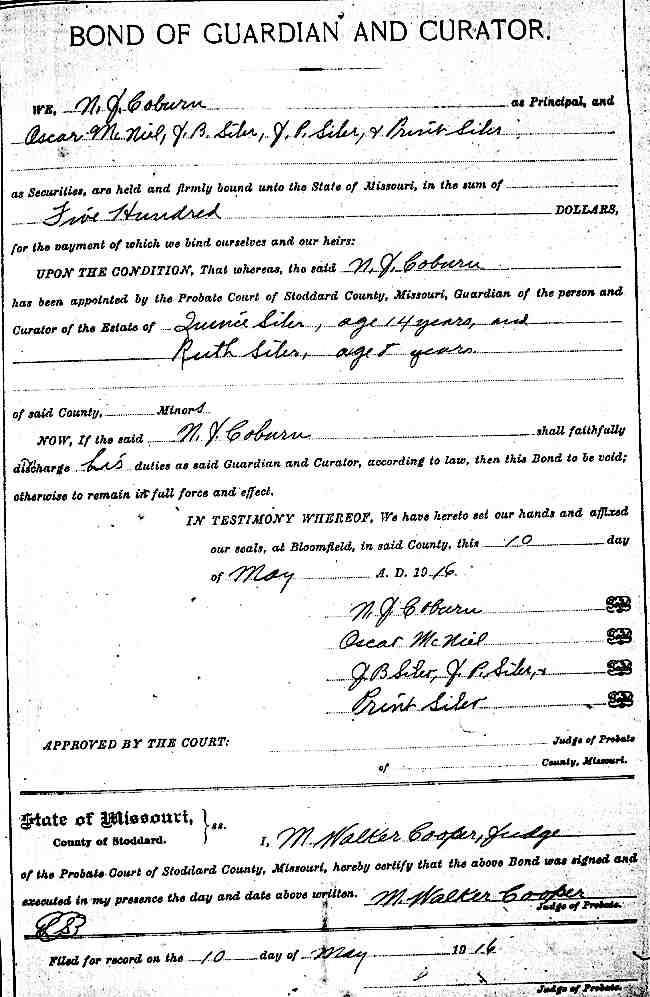 BOND OF GUARDIAN AND CURATOR.
WE, N. J. Coburn as Principal, and
Oscar McNiel, J. B. Siler, J. P. Siler, & Print Siler
as Securities, are held and firmly bound unto the State of Missouri, in the sum of
Five Hundred DOLLARS,
for the payment of which we bind ourselves and our heirs:
UPON THE CONDITION, That whereas, the said N. J. Coburn
has been appointed by the Probate Court of Stoddard County, Missouri, Guardian of the person and
Curator of the Estate of Siler, age 14 years, and
Ruth Siler, age 8 years.
of said County, Minors
NOW, If the said N. J. Coburn shall faithfully
discharge his duties as said Guardian and Curator, according to law, then this Bond to be void;
otherwise to remain in full force and effect.
IN TESTIMONY WHEREOF, We have hereto set our hands and affixed
our seals, at Bloomfield, in said County, this 10 day
of May A. D. 1916.
N. J. Coburn
Oscar McNiel
J B Siler, J. P. Siler, &
Print Siler
APPROVED BY THE COURT: Judge of Probate
of County, Missouri.
State of Missouri, } ss.
County of Stoddard.
I, M. Walker Cooper, Judge
of the Probate Court of Stoddard County, Missouri, hereby certify that the above Bond was signed and
executed in my presence the day and date above written. M. Walker Cooper
Judge of Probate.
Filed for record on the 10 day of May 1916
Judge of Probate.